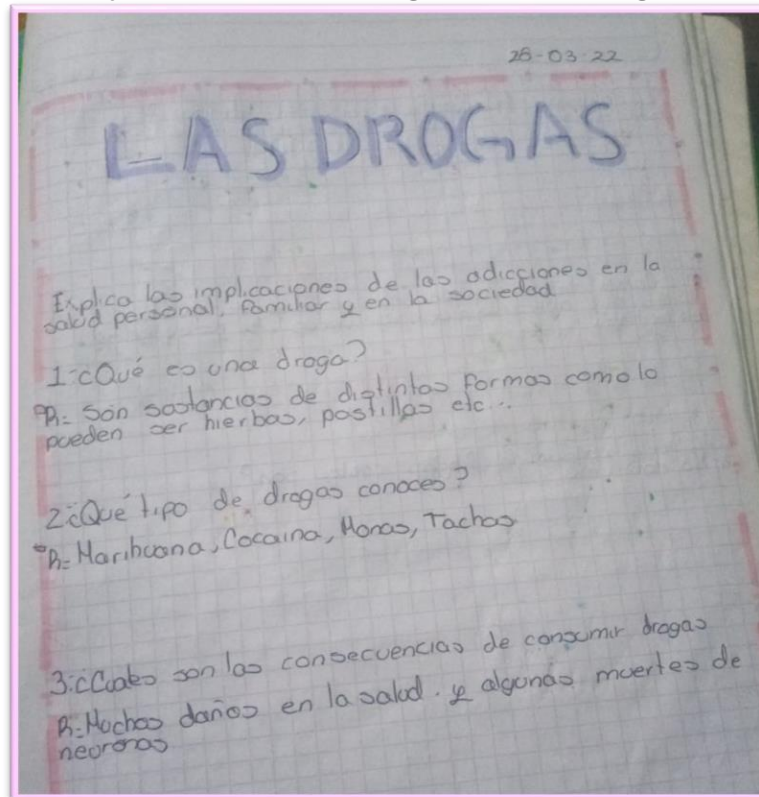 28-03-22
LAS DROGAS
Explica las implicaciones de las adicciones en la
salud personal, familiar y en la sociedad
1.¿Qué es una droga?
R= Son sustancias de distintas formas como lo
pueden ser hierbas, pastillas etc..
2¿Qué tipo de drogas conoces?
R= Marihuana, Cocaina, Monas, Tachas
3.¿Cuales son las consecuencias de consumir drogas
R= Muchos daños en la salud. y algunas muertes de
neuronas